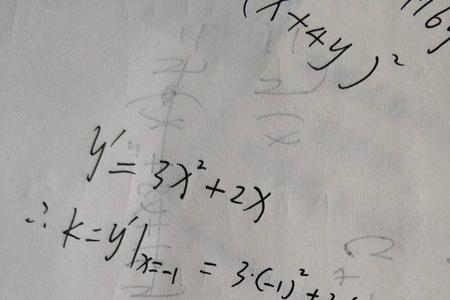 (x+4y)²
y′=3x²+2x
∴ k=y′|x=-1 = 3·(-1)²+